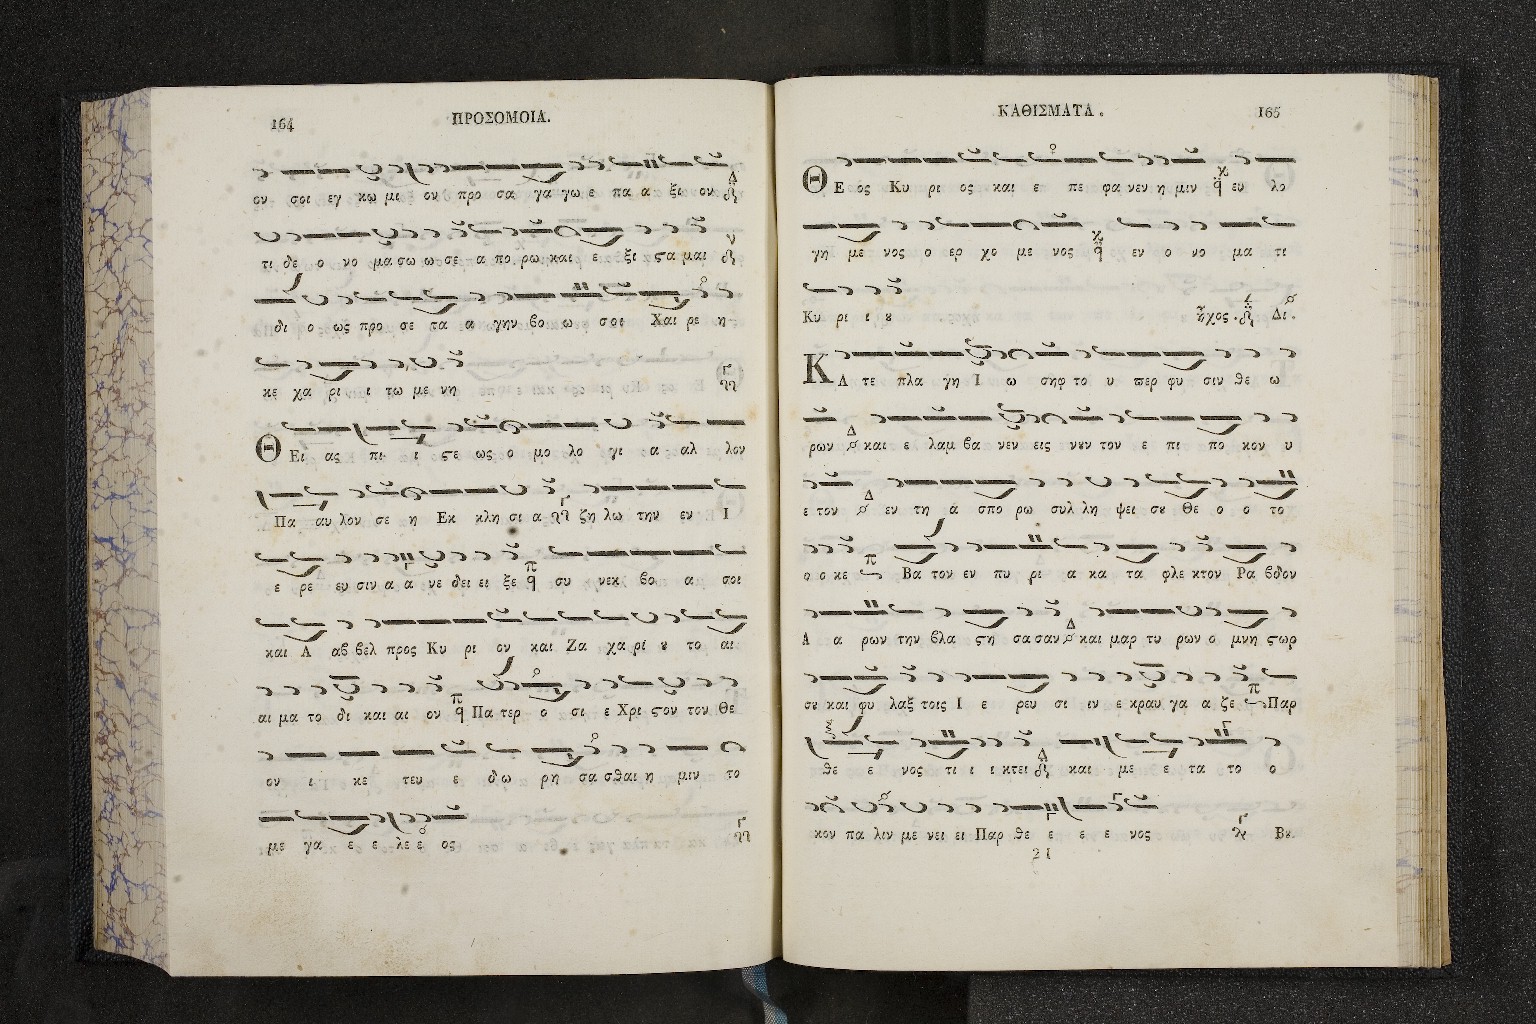 164
ΠΡΟΣΟΜΟΙΑ.
ον σοι εγ κω μι ον προ σα γα γω ε πα α ξι ον
τι δε ο νο μα σω ω σε α πο ρω και ε ξι ϛα μαι
δι ο ως προ σε τα α γην βο ω σοι Χαι ρε η
κε χα ρι ι τω με νη
Θ Ει ας πι ι ϛε ως ο μο λο γι α αλ λον
Πα αυ λον σε η Εκ κλη σι α ζη λω την εν Ι
ε ρε ευ σιν α α νε δει ει ξε συ νεκ βο α σοι
και Α αβ βελ προς Κυ ρι ον και Ζα χα ρί ȣ το αι
αι μα το δι και αι ον Πα τερ ο σι ε Χρι ϛον τον Θε
ον ι κε τευ ε δω ρη σα σθαι η μιν το
με γα ε ε λε ε ος
ΚΑΘΙΣΜΑΤΑ.
165
Θ Ε ος Κυ ρι ος και ε πε φα νεν η μιν ευ λο
γη με νος ο ερ χο με νος εν ο νο μα τι
Κυ ρι ι ȣ ἦχος Δι.
Κ Α τε πλα γη Ι ω σηφ το υ περ φυ σιν θε ω
ρων και ε λαμ βα νεν εις νȣν τον ε πι πο κον υ
ε τον εν τη α σπο ρω συλ λη ψει σȣ Θε ο ο το
ο ο κε Βα τον εν πυ ρι α κα τα φλε κτον Ρα βδον
Α α ρων την βλα ϛη σα σαν και μαρ τυ ρων ο μνη ϛωρ
σȣ και φυ λαξ τοις Ι ε ρευ σι ιν ε κραυ γα α ζε Παρ
θε ε νος τι ι ι κτει και με ε τα το ο
κον πα λιν με νει ει Παρ θε ε ε ε νος Βȣ.
21